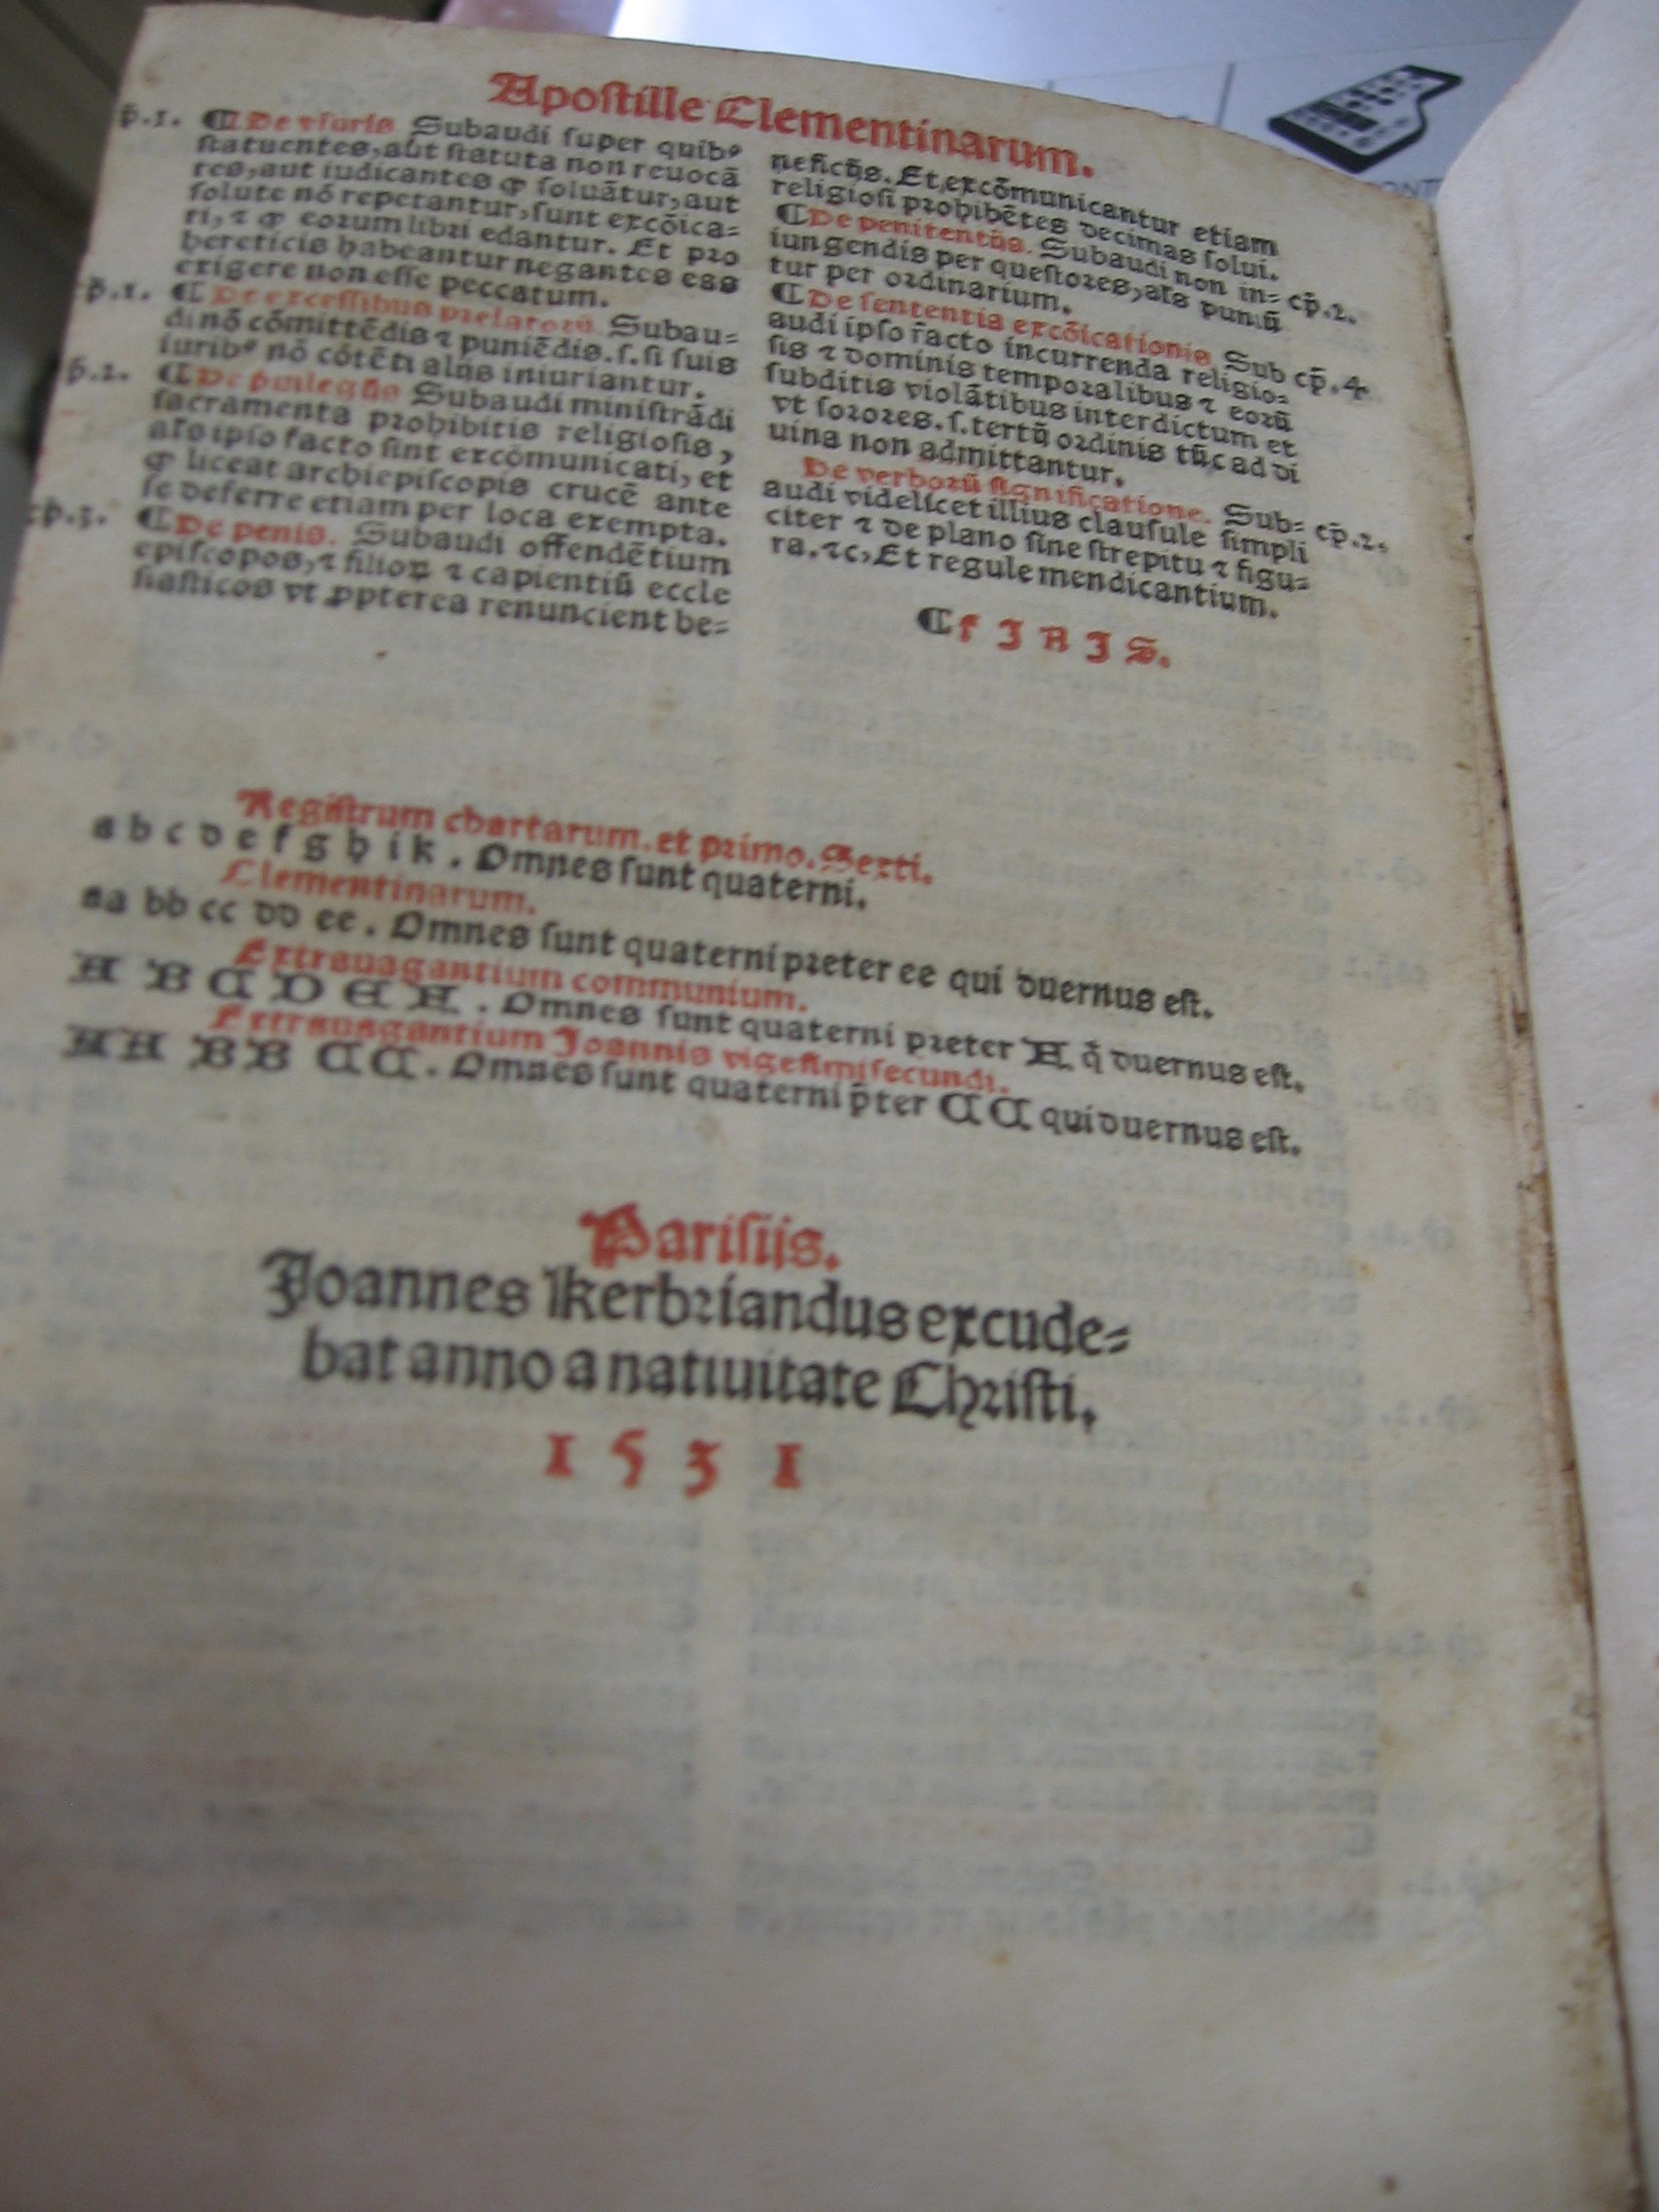 Apostille Clementinarum.
p̄.1. ¶ De vsuris Subaudi super quibꝰ
statuentes, aut statuta non reuocā
tes, aut iudicantes ꝙ soluātur, aut
solute nō repetantur, sunt excōica⸗
ti, ⁊ ꝙ eorum libri edantur. Et pro
hereticis habeantur negantes ess
exigere non esse peccatum.
cp̄.1. ¶ De excessibus prelatorū. Subau⸗
di nō cōmittēdis ⁊ puniēdis. s. si suis
iuribꝰ nō cōtēti alijs iniuriantur.
cp̄.1. ¶ De priuilegijs Subaudi ministrādi
sacramenta prohibitis religiosis,
als ipso facto sint excōmunicati, et
ꝙ liceat archiepiscopis crucē ante
se deferre etiam per loca exempta.
cp̄.3. ¶ De penis. Subaudi offendētium
episcopos, ⁊ filioꝝ ⁊ capientiū eccle
siasticos vt ꝓpterea renuncient be⸗
neficijs. Et excōmunicantur etiam
religiosi prohibētes decimas solui.
¶ De penitentijs. Subaudi non in⸗ cp̄.2.
iungendis per questores, als puniū
tur per ordinarium.
¶ De sententia excōicationis Sub cp̄.4
audi ipso facto incurrenda religio⸗
sis ⁊ dominis temporalibus ⁊ eorū
subditis violātibus interdictum et
vt sorores. s. tertij ordinis tūc ad di
uina non admittantur.
De verborū significatione. Sub⸗ cp̄.2.
audi videlicet illius clausule simpli
citer ⁊ de plano sine strepitu ⁊ figu⸗
ra. ⁊c, Et regule mendicantium.
¶ F I N I S.
Registrum chartarum. et primo. Sexti.
a b c d e f g h i k . Omnes sunt quaterni.
Clementinarum.
aa bb cc dd ee . Omnes sunt quaterni preter ee qui duernus est.
Extrauagantium communium.
A B C D E F . Omnes sunt quaterni preter F q̄ duernus est.
Extrauagantium Joannis vigesimisecundi.
AA BB CC . Omnes sunt quaterni p̄ter CC qui duernus est.
Parisijs.
Joannes Kerbriandus excude⸗
bat anno a natiuitate Christi,
1 5 3 1